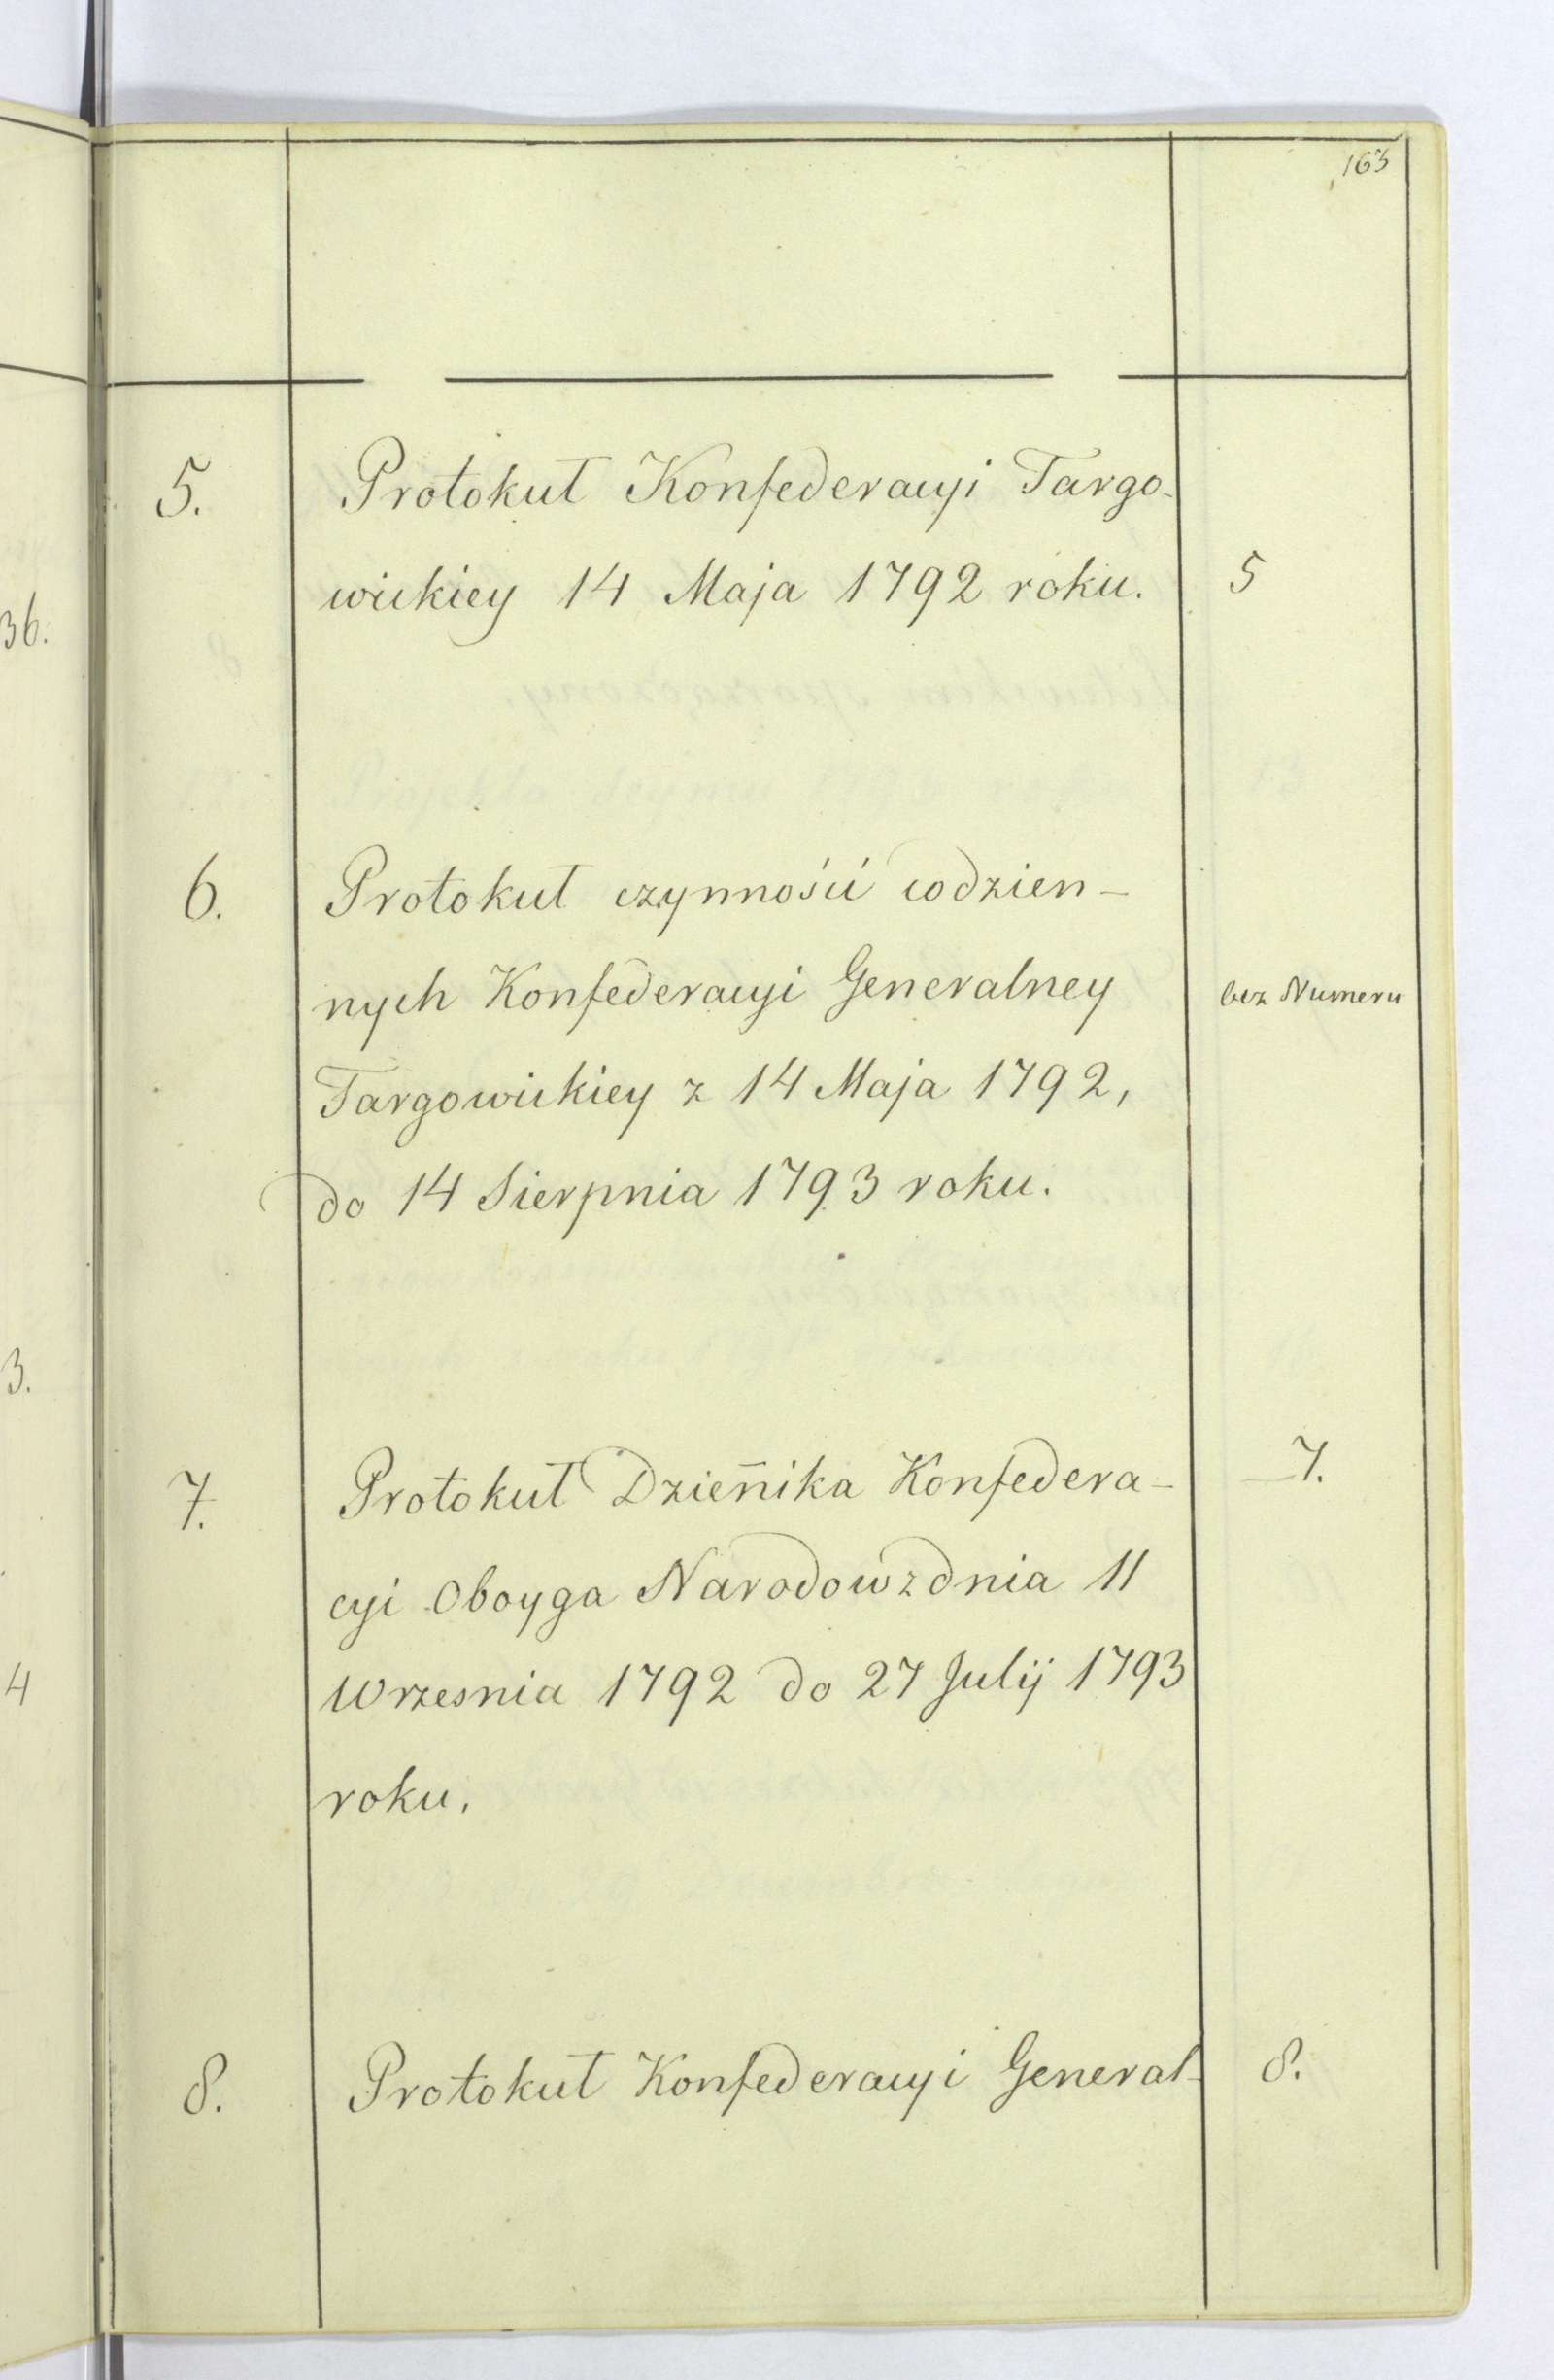 163
5. Protokuł Konfederacyi Targo-
wickiey 14 Maja 1792 roku. 5
6. Protokuł czynności codzien-
nych Konfederacyi Generalney bez Numeru
Targowickiey z 14 Maja 1792,
do 14 Sierpnia 1793 roku.
7. Protokuł Dzien̄ika Konfedera- 7.
cyi Oboyga Narodow z dnia 11
Wrzesnia 1792 do 27 Julij 1793
roku.
8. Protokuł Konfederacyi General- 8.
36.
3.
4